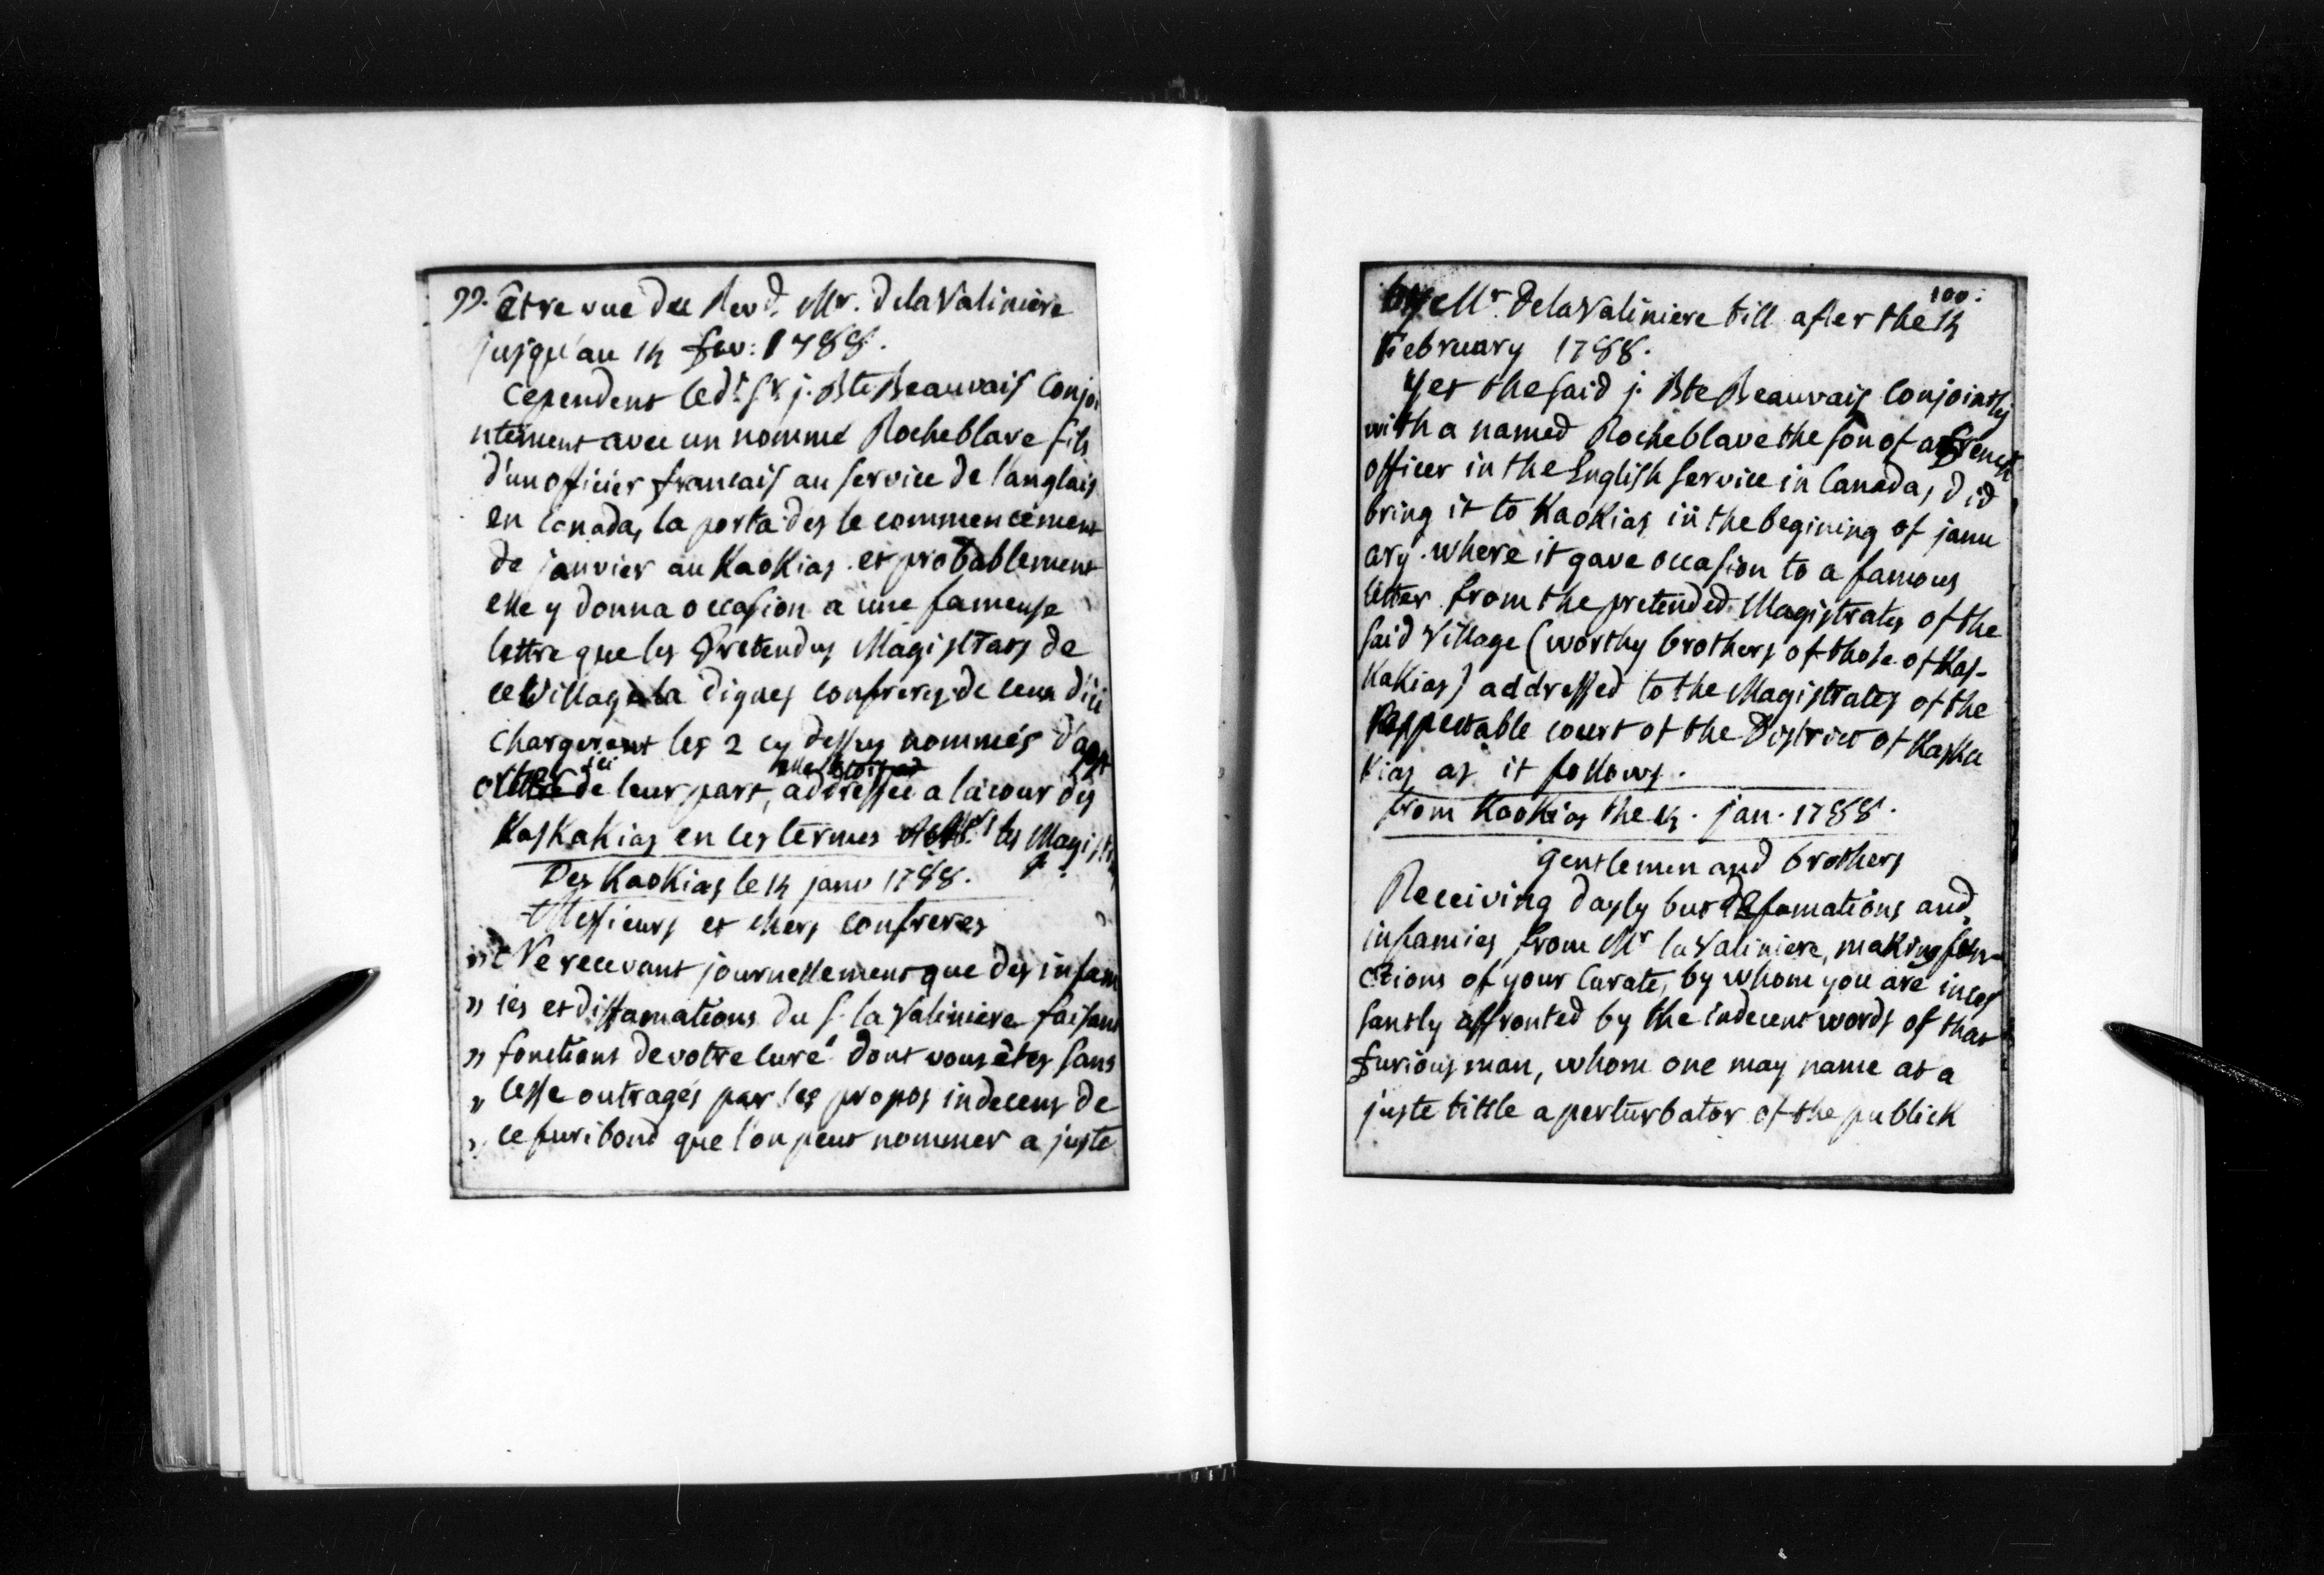 99. être vue du Revd. Mr. delaValiniere
jusqu'au 14 fev: 1788.
Cependent ledt. Sr. j. Bte Beauvais Conjoi
ntement avec un nommé Rocheblave fils
d'un officier francais au service de l'anglais
en Canada, la porta des le commencement
de janvier au KaoKias et probablement
elle y donna occasion a une fameuse
lettre que les Pretendus Magistrats de
ce Village la dignes confreres de ceux d'ici
chargerent les 2 cy dessus nommés d'app
orter ici de leur part, addressée a la cour des
KasKaKias en ces termes les Magist
Des KaoKias le 14 janv 1788.
Messieurs et chers confreres
Ne recevant journellement que des infam
" ies et diffamations du S. la Valiniere faisant
" fonctions de votre curé dont vous êtes sans
" cesse outragés par les propos indecens de
" ce furibond que l'on peut nommer a juste
100.
by Mr. DelaValiniere till after the 14
February 1788.
Yet the said j. Bte Beauvais Conjointly
with a named Rocheblave the son of a french
officer in the English service in Canada, did
bring it to KaoKias in the begining of janu
ary. where it gave occasion to a famous
letter from the pretended Magistrates of the
said Village (worthy brothers of those of Kas-
KaKias) addressed to the Magistrates of the
Respectable court of the District of Kaska
Kias as it follows.
from KaoKias the 14. jan. 1788.
gentlemen and brothers
Receiving dayly but defamations and
infamies from Mr la Valiniere, making fun-
ctions of your Curate, by whom you are inces
santly affronted by the indecent words of that
furious man, whom one may name at a
juste tittle a perturbator of the publick